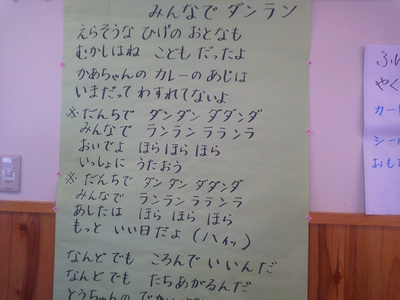 みんなで ダンラン
えらそうな ひげの おとなも
むかしはね こども だったよ
かあちゃんの カレーの あじは
いまだって わすれてないよ
※だんちで ダンダン ダダンダ
みんなで ランラン ラランラ
おいでよ ほら ほら ほら
いっしょに うたおう
※だんちで ダンダン ダダンダ
みんなで ランランララン ラ
あしたは ほら ほら ほら
もっと いい日だよ(ハイッ)
なんどでも ころんで いいんだ
なんどでも たちあがるんだ
とうちゃんの
やく
カー
シー
おも